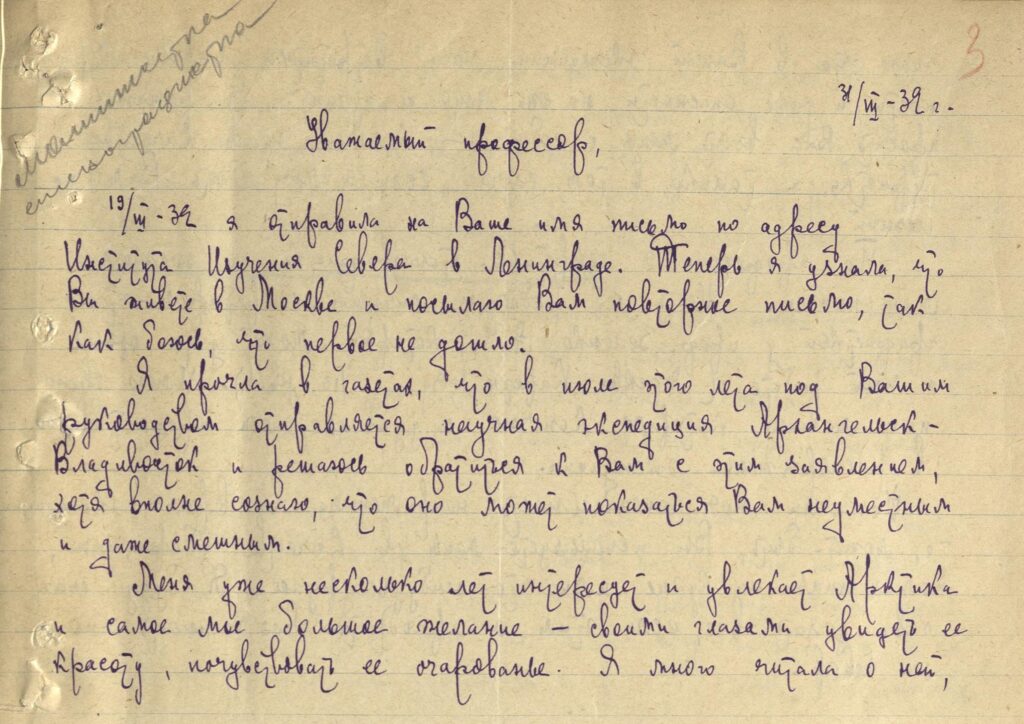 Машинистка
стенографистка
3
31/III-32 г.
Уважаемый профессор,
19/III-32 я отправила на Ваше имя письмо по адресу
Института Изучения Севера в Ленинграде. Теперь я узнала, что
Вы живете в Москве и посылаю Вам повторное письмо, так
как боюсь, что первое не дошло.
Я прочла в газетах, что в июле этого лета под Вашим
руководством отправляется научная экспедиция Архангельск -
Владивосток и решаюсь обратиться к Вам с этим заявлением,
хотя вполне сознаю, что оно может показаться Вам неуместным
и даже смешным.
Меня уже несколько лет интересует и увлекает Арктика
и самое мое большое желание – своими глазами увидеть ее
красоту, почувствовать ее очарованье. Я много читала о ней,